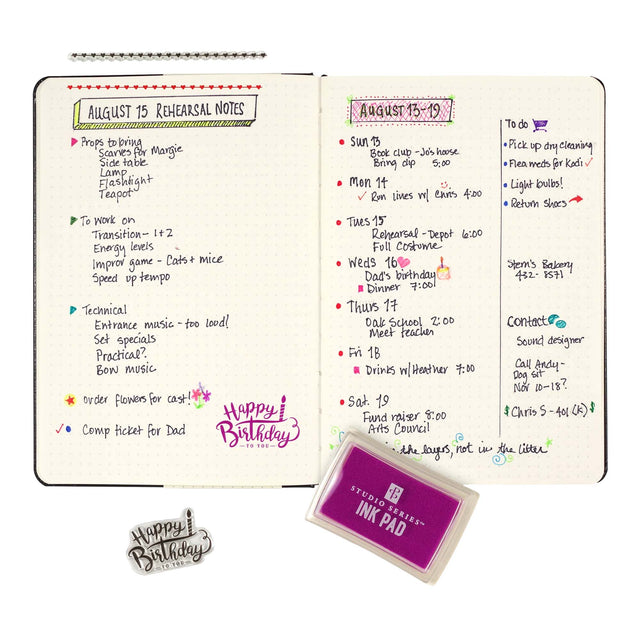 AUGUST 15 REHEARSAL NOTES
Props to bring
Scarves for Margie
Side table
Lamp
Flashlight
Teapot
To work on
Transition - 1+2
Energy levels
Improv game - Cats + mice
Speed up tempo
Technical
Entrance music - too loud!
Set specials
Practical?
Bow music
order flowers for cast!
Comp ticket for Dad
Happy
Birthday
TO YOU
AUGUST 13-19
Sun 13
Book club - Jo's house
Bring dip 5:00
Mon 14
Run lines w/ Chris 4:00
Tues 15
Rehearsal - Depot 6:00
Full Costume
Weds 16
Dad's birthday
Dinner 7:00
Thurs 17
Oak School 2:00
Meet teacher
Fri 18
Drinks w/ Heather 7:00
Sat. 19
Fund raiser 8:00
Arts Council
the layers, not in the litter
To do
Pick up dry cleaning
Flea meds for Kodi
Light bulbs!
Return shoes
Stern's Bakery
432-8571
Contact
Sound designer
Call Andy-
Dog sit
Nov 10-18?
$ Chris S - 401(K) $
Happy
Birthday
TO YOU
STUDIO SERIES™
INK PAD